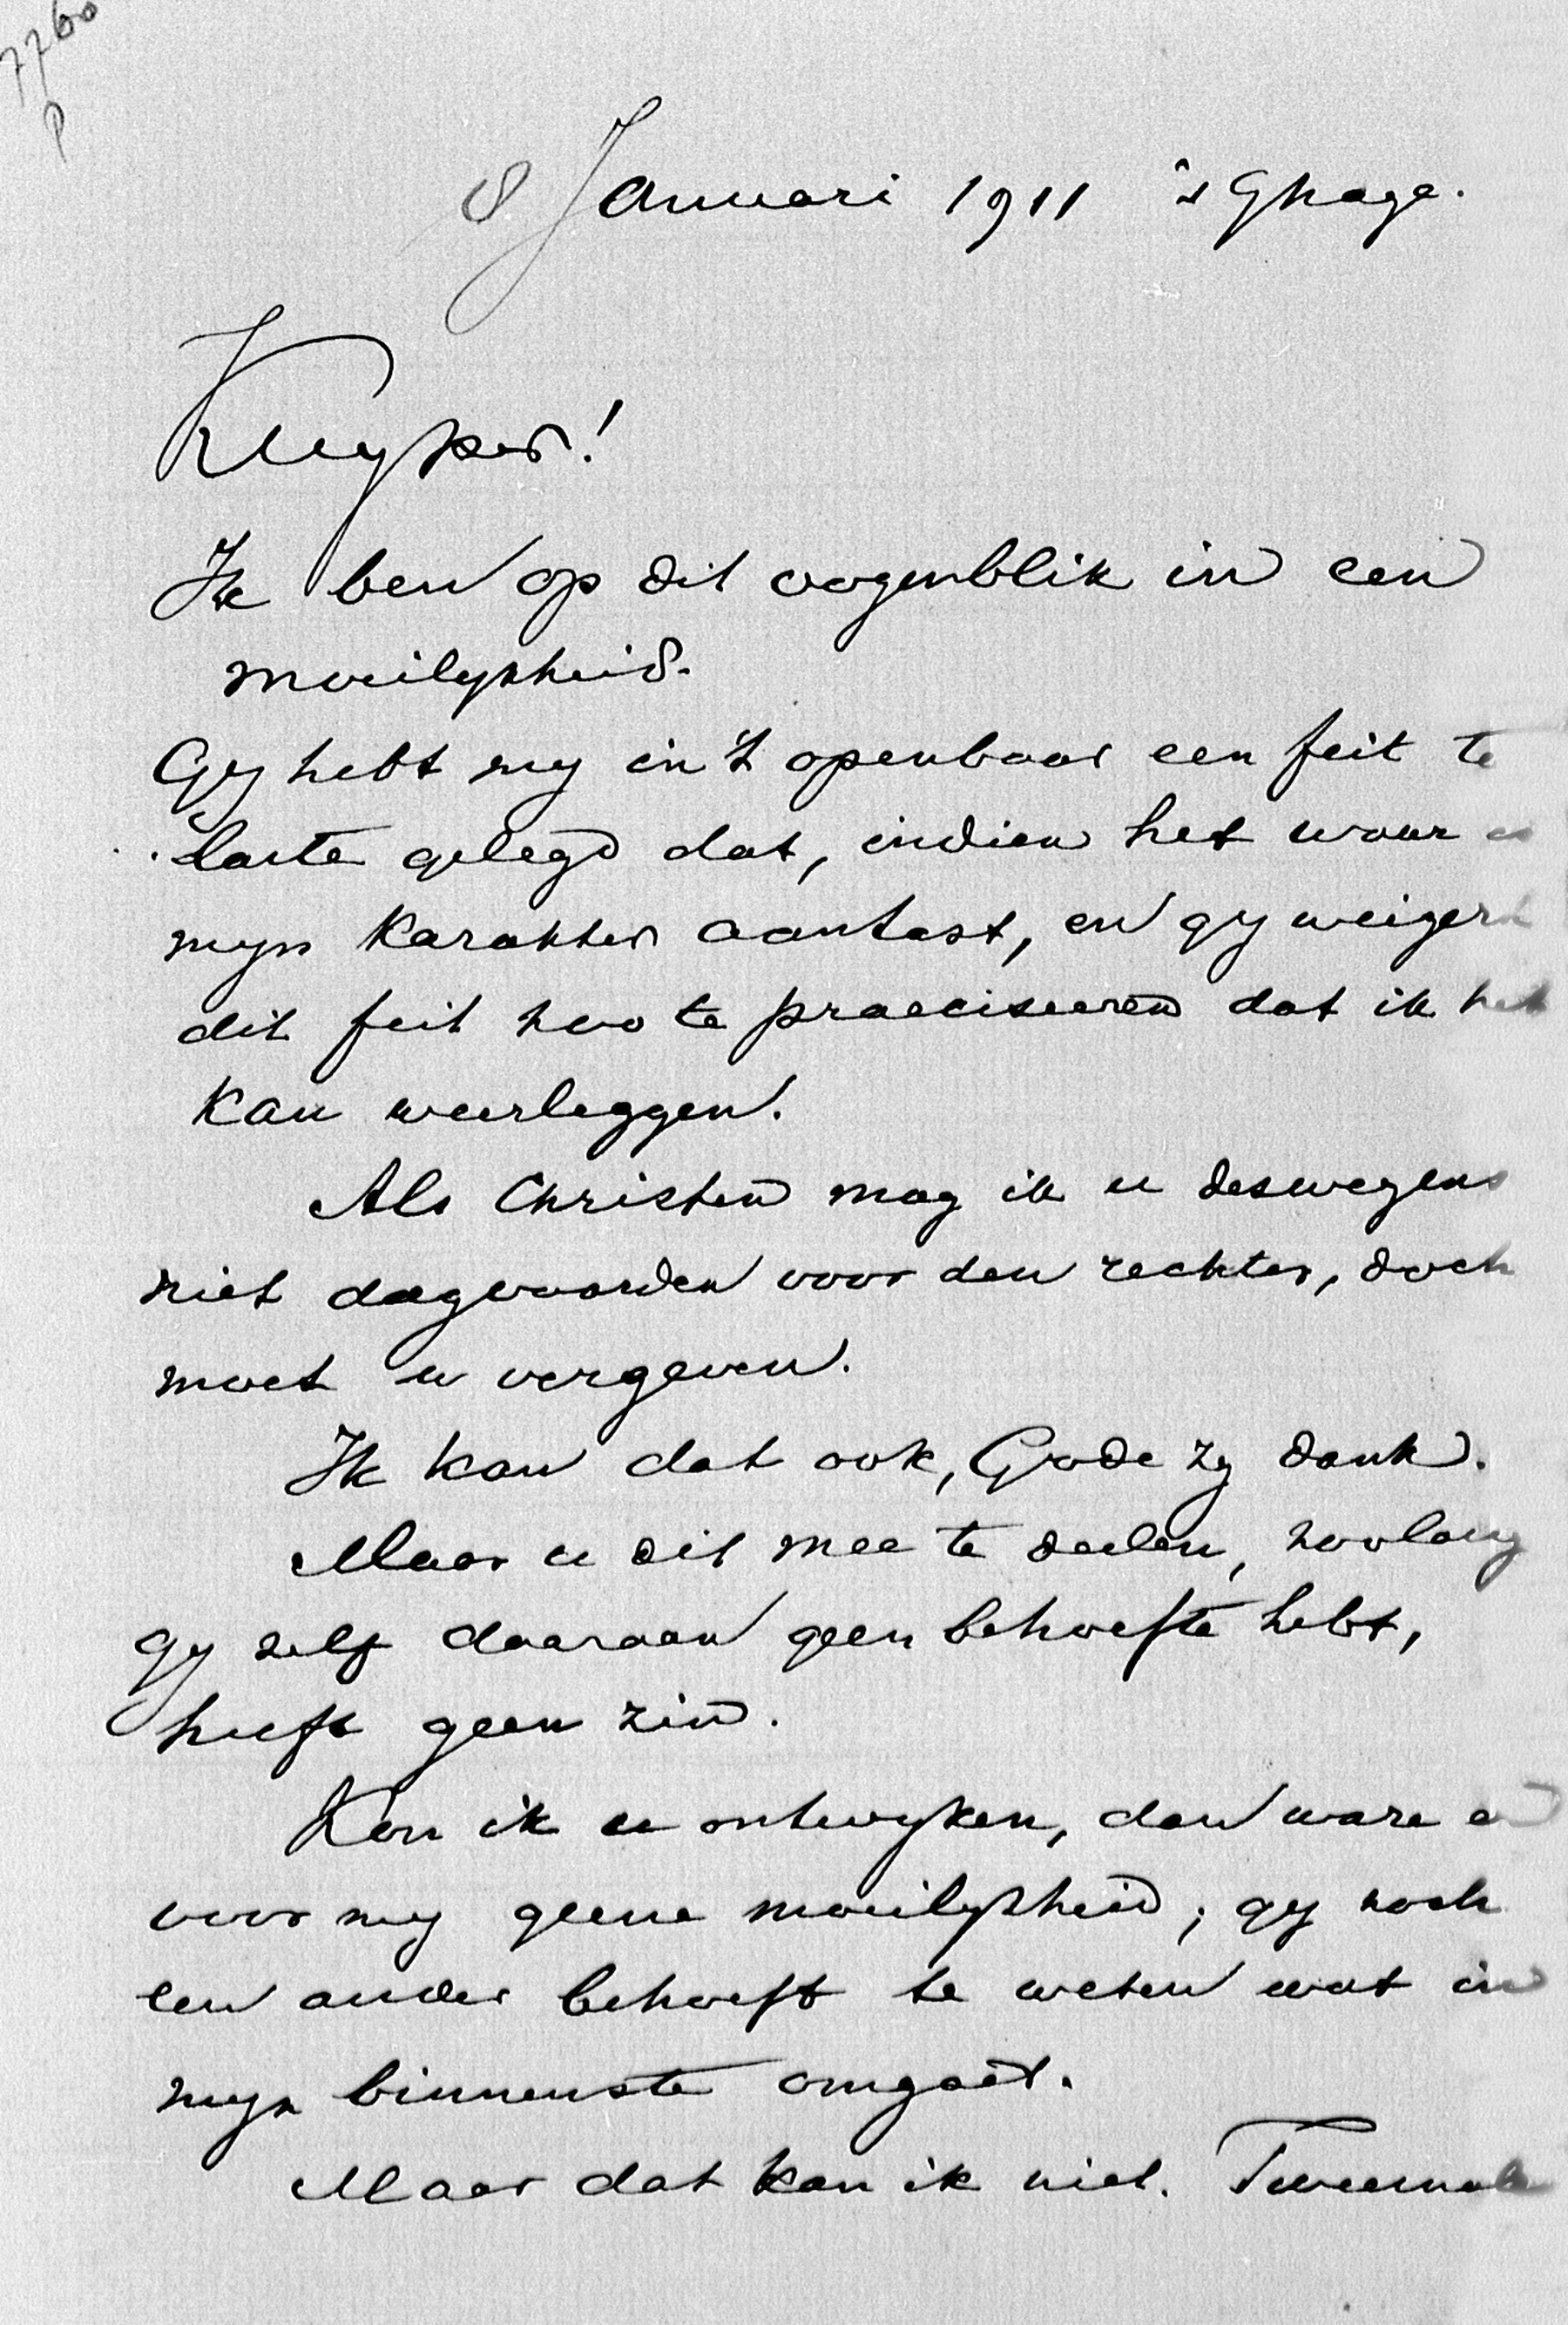 7760
P
8 Januari 1911 's Ghage.
Kuyper!
Ik ben op dit oogenblik in een
moeilykheid.
Gy hebt my in 't openbaar een feit te
laste gelegd dat, indien het waar is
myn karakter aantast, en gy weigert
dit feit zoo te praeciseeren dat ik het
kan weerleggen.
Als Christen mag ik u deswegens
niet dagvaarden voor den rechter, doch
moet u vergeven.
Ik kan dat ook, Gode zy dank.
Maar u dit mee te deelen, zoolang
gy zelf daaraan geen behoefte hebt,
heeft geen zin.
Kon ik u ontwyken, dan ware er
voor my geene moeilykheid; gy noch
een ander behoeft te weten wat in
myn binnenste omgaat.
Maar dat kan ik niet. Tweemalen